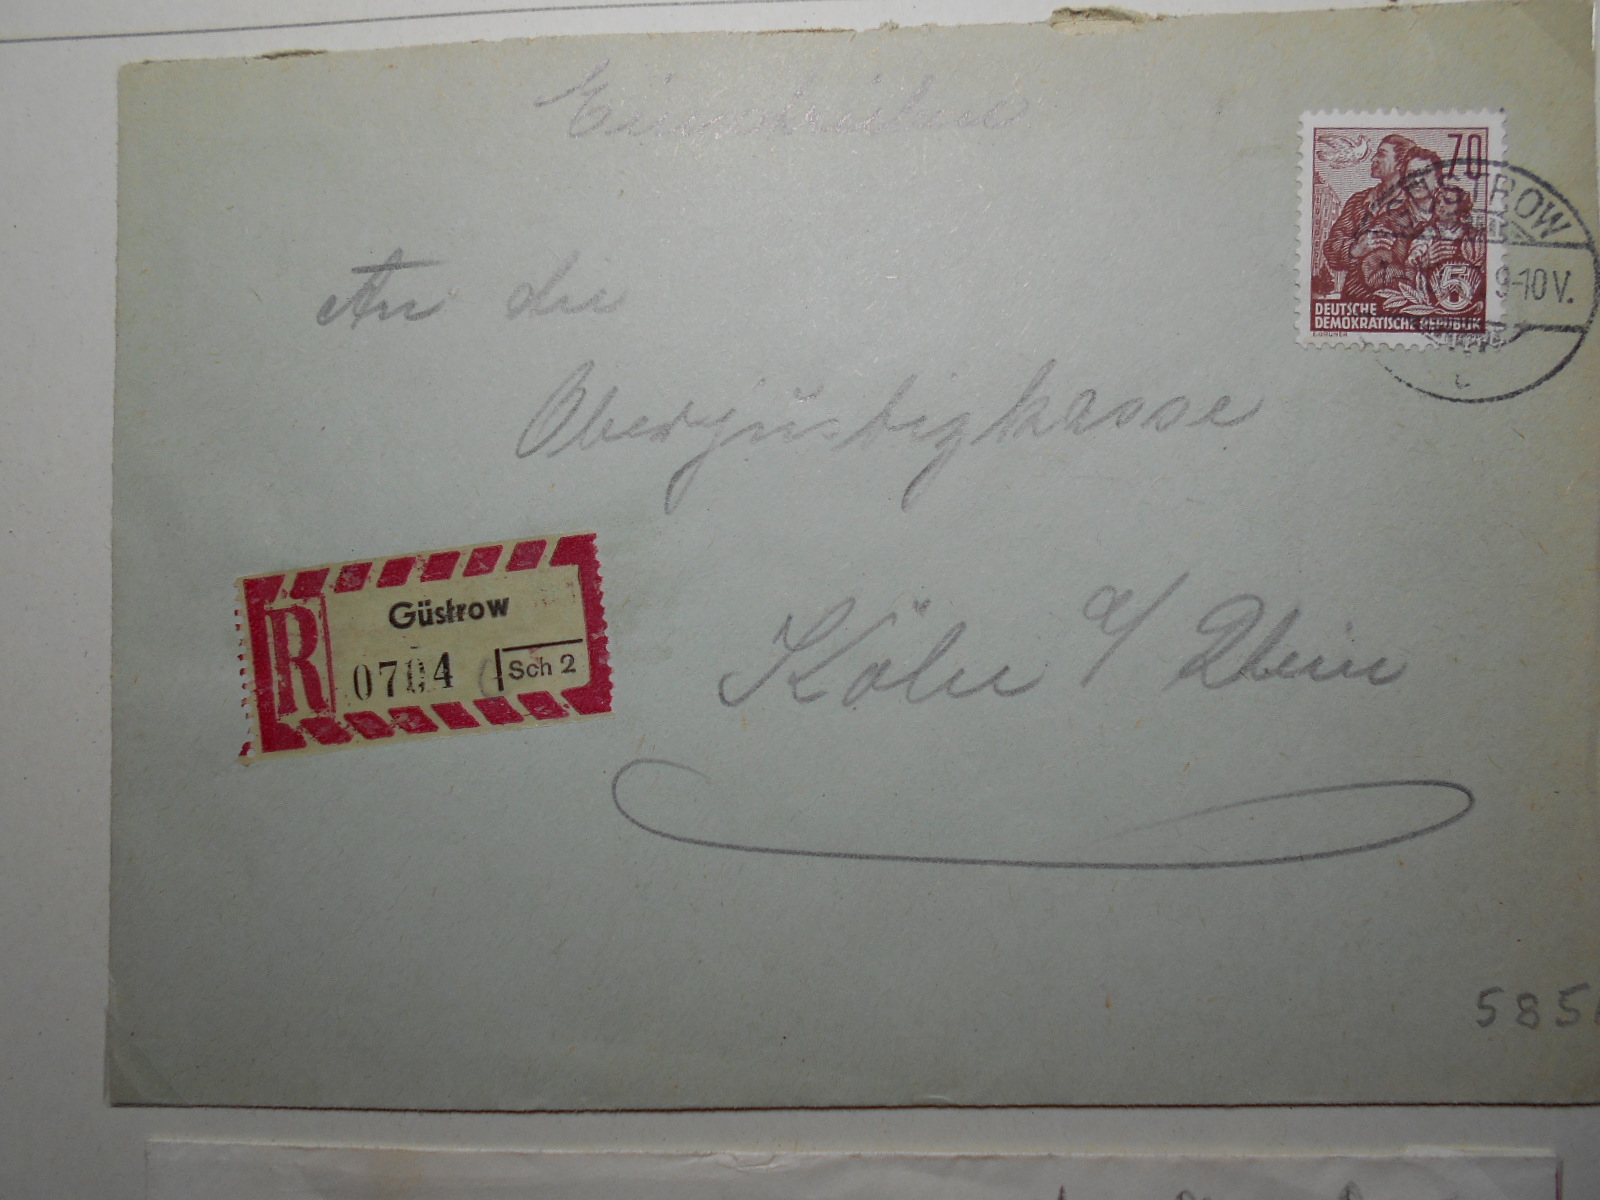 Einschreiben
70
GÜSTROW
9-10 V.
5
DEUTSCHE
DEMOKRATISCHE REPUBLIK
E.GRUNER
c
An die
Oberjustizkasse
R
Güstrow
0704
Sch 2
Köln a/ Rhein
585